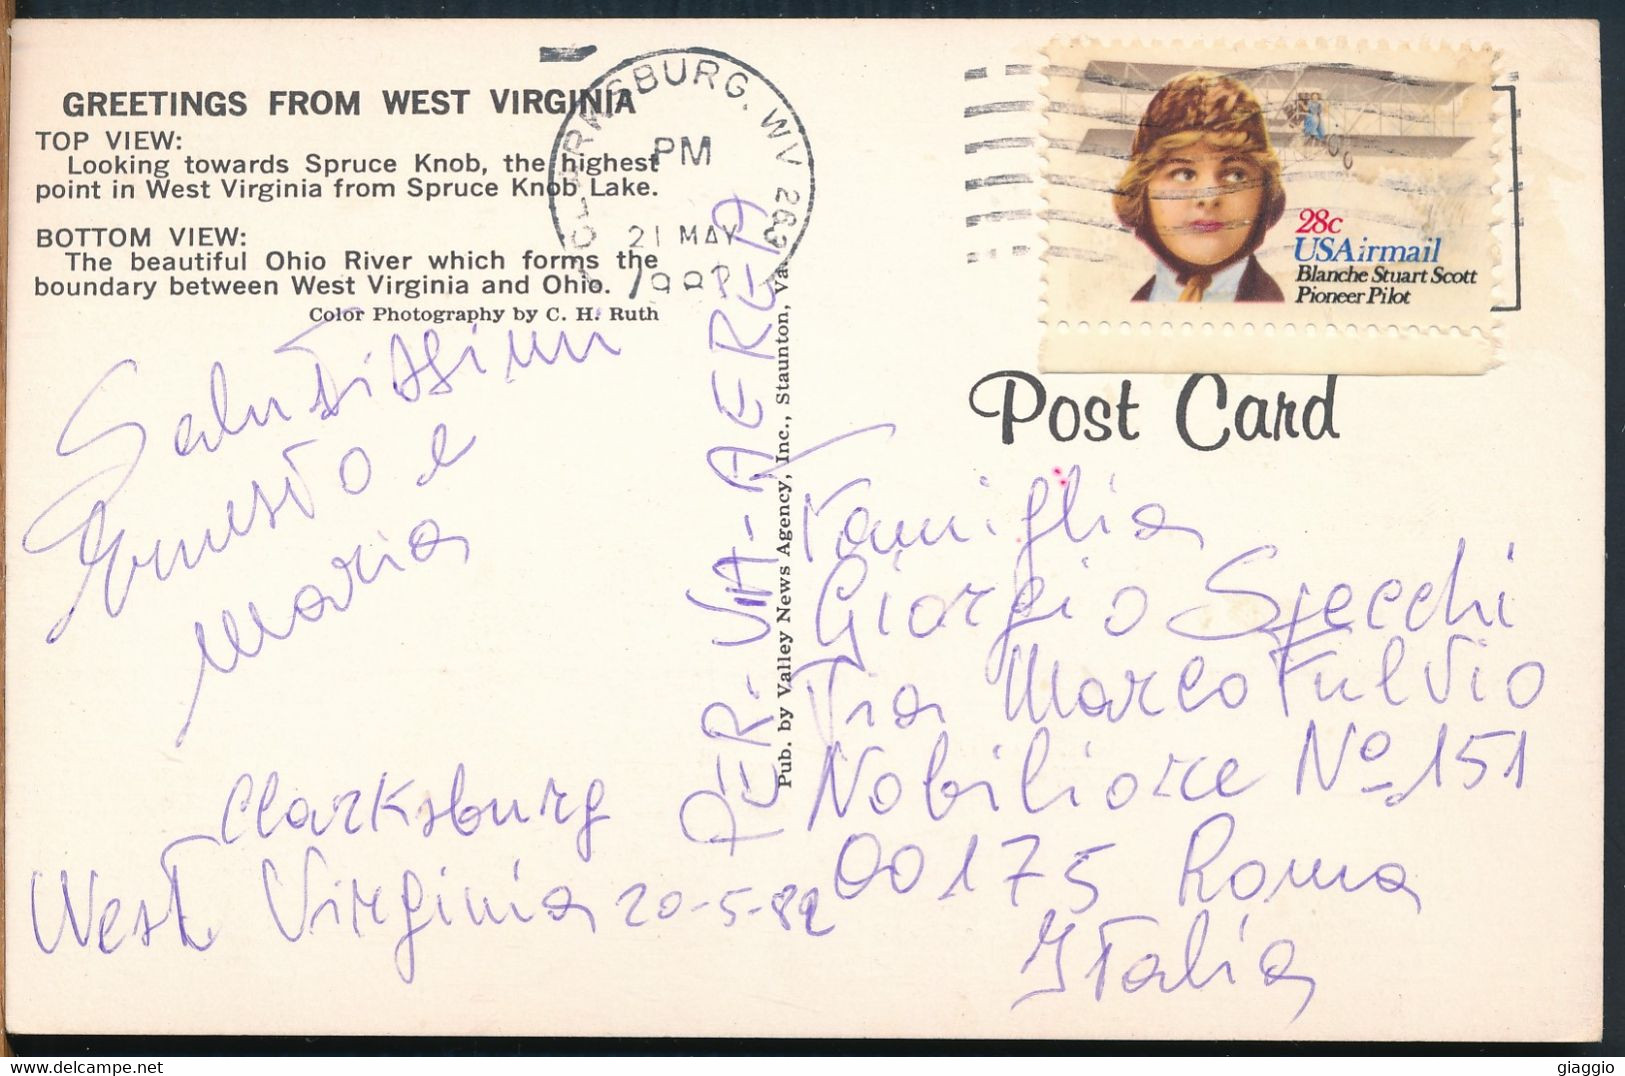 GREETINGS FROM WEST VIRGINIA
TOP VIEW:
Looking towards Spruce Knob, the highest
point in West Virginia from Spruce Knob Lake.
BOTTOM VIEW:
The beautiful Ohio River which forms the
boundary between West Virginia and Ohio.
Color Photography by C. H. Ruth
CLARKSBURG, WV 263
PM
21 MAY
28c
USAirmail
Blanche Stuart Scott
Pioneer Pilot
Post Card
Pub. by Valley News Agency, Inc., Staunton, Va.
PER-VIA-AEREA
Salutissimi
Ernesto e
Maria
Clarksburg
West Virginia 20-5-82
Famiglia
Giorgio Specchi
Via Marco Fulvio
Nobiliore Nº 151
00175 Roma
Italia
giaggio